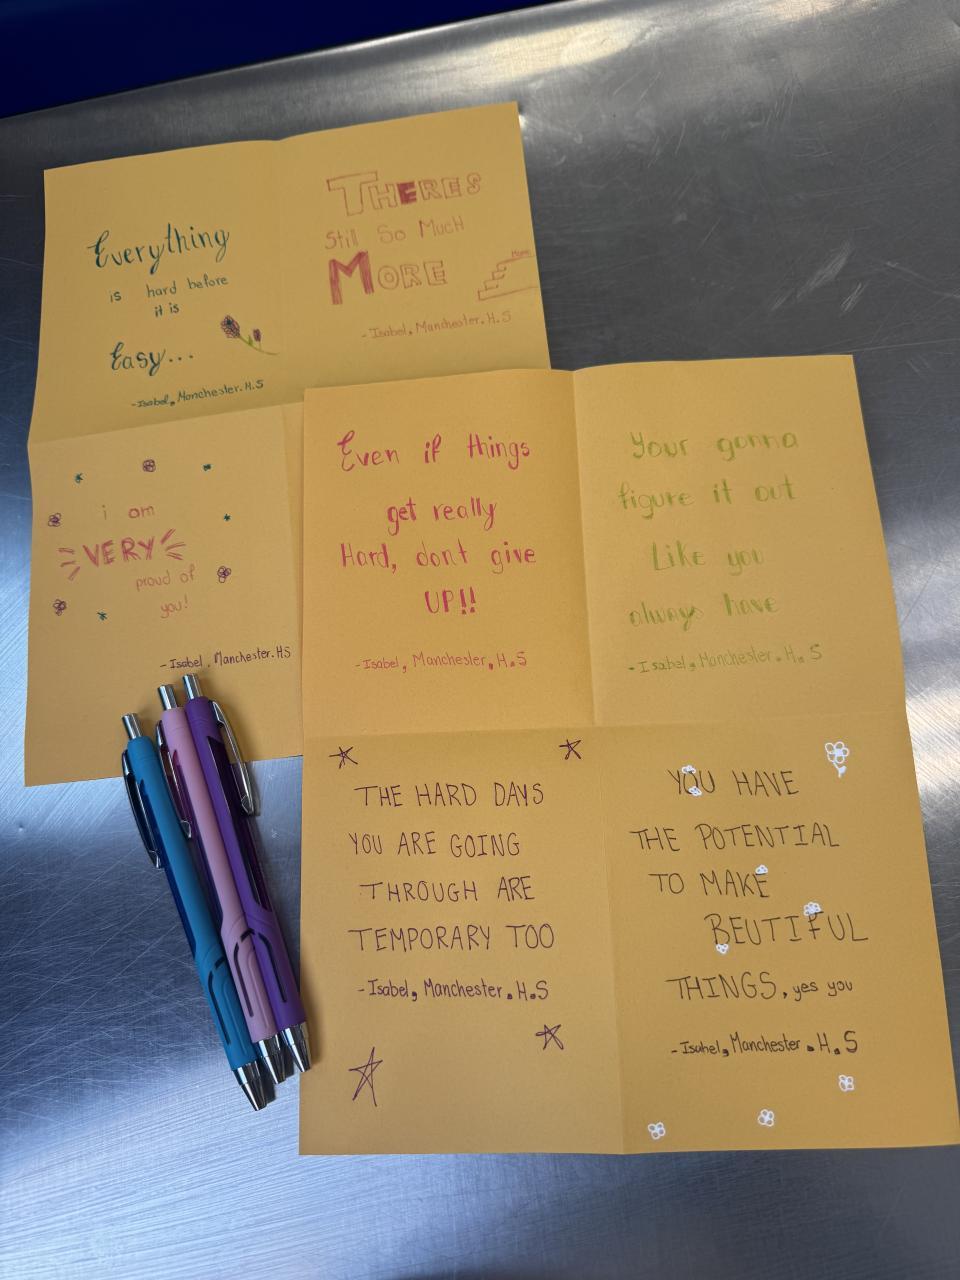 Everything
is hard before
it is
Easy...
-Isabel, Manchester.H.S
THERES
Still So MucH
MORE
More
-Isabel, Manchester.H.S
i am
VERY
proud of
you!
-Isabel, Manchester.HS
Even if things
get really
Hard, dont give
UP!!
-Isabel, Manchester.H.S
Your gonna
figure it out
Like you
always have
-Isabel, Manchester.H.S
THE HARD DAYS
YOU ARE GOING
THROUGH ARE
TEMPORARY TOO
-Isabel, Manchester.H.S
YOU HAVE
THE POTENTIAL
TO MAKE
BEUTIFUL
THINGS, yes you
-Isabel, Manchester.H.S